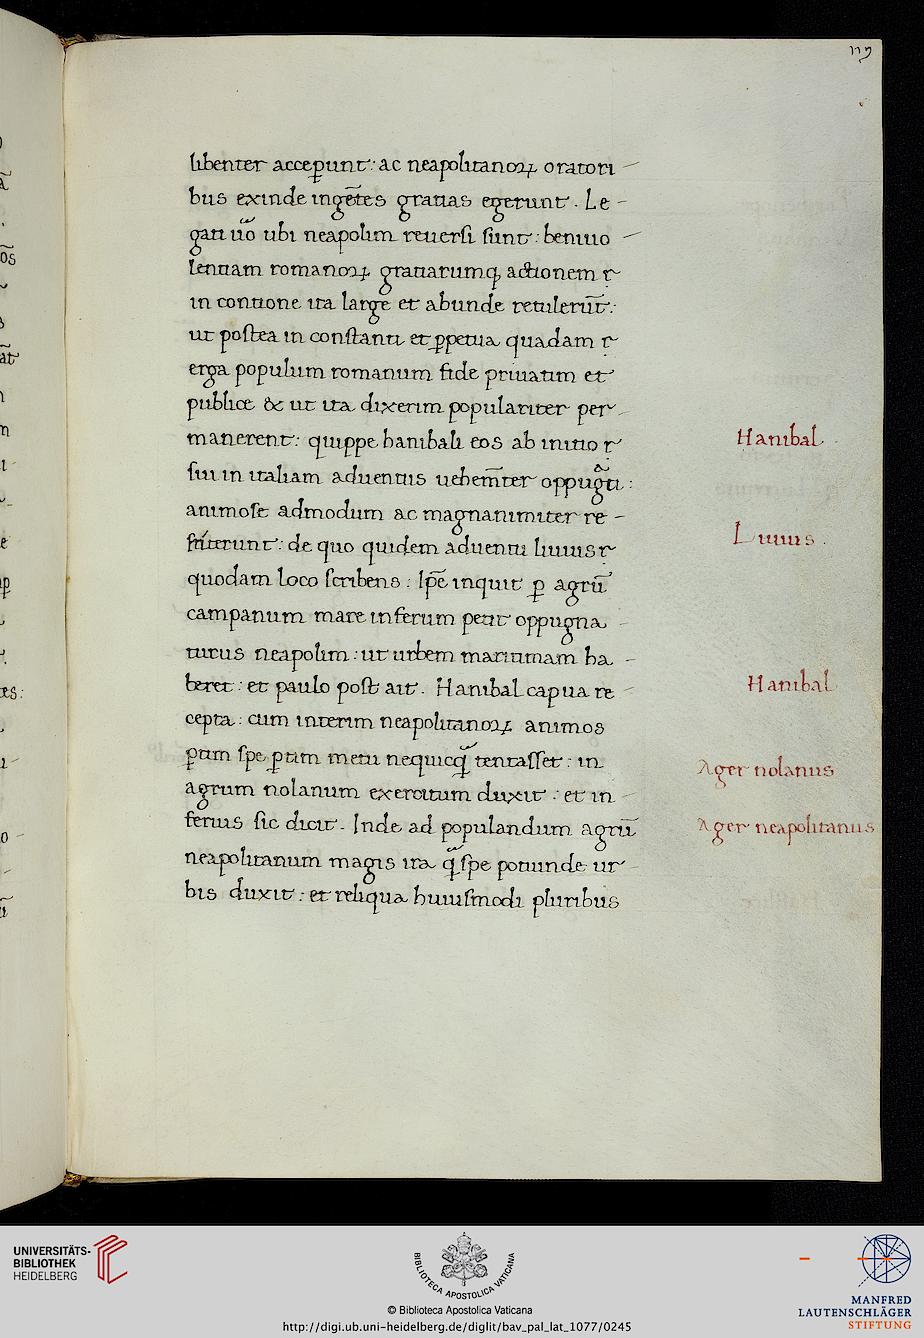 119
libenter acceꝑunt: ac neapolitanoꝝ oratori
bus exinde ingẽtes gratias egerunt. Le-
gati uͦo ubi neapolim reuersi sunt: beniuo
lentiam romanoꝝ gratiarumq; actionem
in contione ita large et abunde retulerũt:
ut postea in constanti et ꝑpetua quadam
erga populum romanum fide priuatim et
publice & ut ita dixerim populariter per
manerent: quippe hanibali eos ab initio
sui in italiam aduentus uehem̃ter oppugᷓti:
animose admodum ac magnanimiter re-
stiterunt: de quo quidem aduentu liuius
quodam loco scribens: Ip̃e inquit ꝑ agrũ
campanum mare inferum petit oppugna
turus neapolim: ut urbem maritimam ha-
beret: et paulo post ait. Hanibal capua re
cepta: cum interim neapolitanoꝝ animos
ꝑtim spe ꝑtim metu nequicq̃ tentasset: in
agrum nolanum exercitum duxit: et in
ferius sic dicit. Inde ad populandum agrũ
neapolitanum magis ira q̃ spe potiunde ur
bis duxit: et reliqua huiusmodi pluribus
Hanibal
Liuius.
Hanibal
Ager nolanus
Ager neapolitanus
UNIVERSITÄTS-
BIBLIOTHEK
HEIDELBERG
BIBLIOTECA APOSTOLICA VATICANA
© Biblioteca Apostolica Vaticana
http://digi.ub.uni-heidelberg.de/diglit/bav_pal_lat_1077/0245
MANFRED
LAUTENSCHLÄGER
STIFTUNG